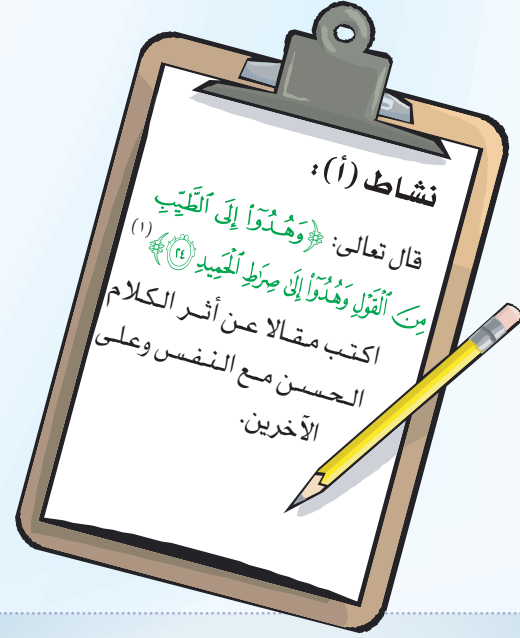 نشاط (أ) :
قال تعالى: ﴿وَهُدُوٓاْ إِلَى ٱلطَّيِّبِ
مِنَ ٱلۡقَوۡلِ وَهُدُوٓاْ إِلَىٰ صِرَٰطِ ٱلۡحَمِيدِ ٢٤﴾ (١)
اكتب مقالا عن أثر الكلام
الحسن مع النفس وعلى
الآخرين.